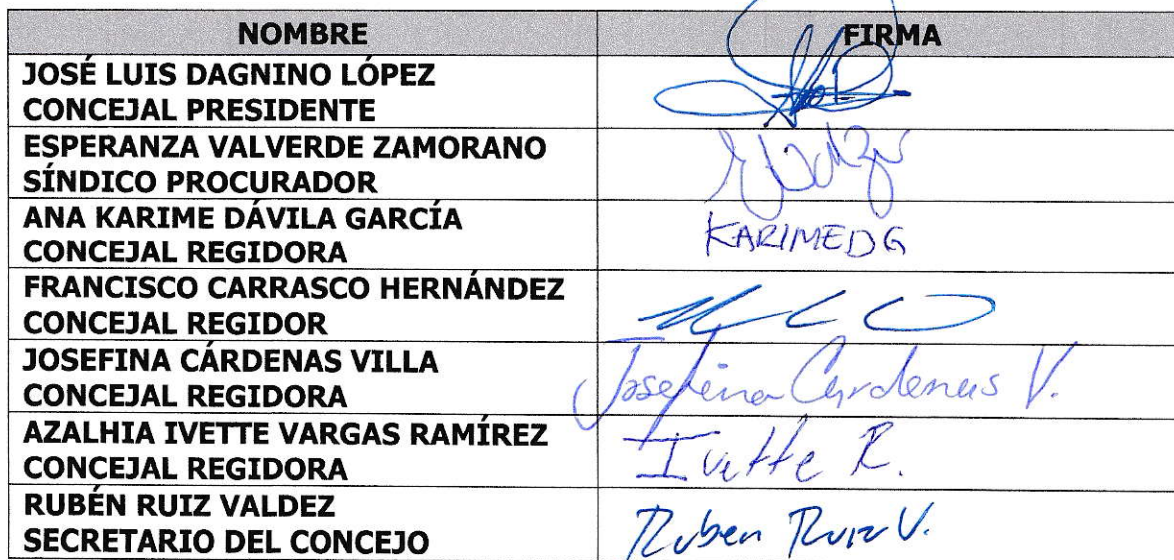 NOMBRE FIRMA
JOSÉ LUIS DAGNINO LÓPEZ
CONCEJAL PRESIDENTE
ESPERANZA VALVERDE ZAMORANO
SÍNDICO PROCURADOR
ANA KARIME DÁVILA GARCÍA
CONCEJAL REGIDORA
KARIMEDG
FRANCISCO CARRASCO HERNÁNDEZ
CONCEJAL REGIDOR
JOSEFINA CÁRDENAS VILLA
CONCEJAL REGIDORA
Josefina Cardenas V.
AZALHIA IVETTE VARGAS RAMÍREZ
CONCEJAL REGIDORA
Ivette R.
RUBÉN RUIZ VALDEZ
SECRETARIO DEL CONCEJO
Ruben Ruiz V.